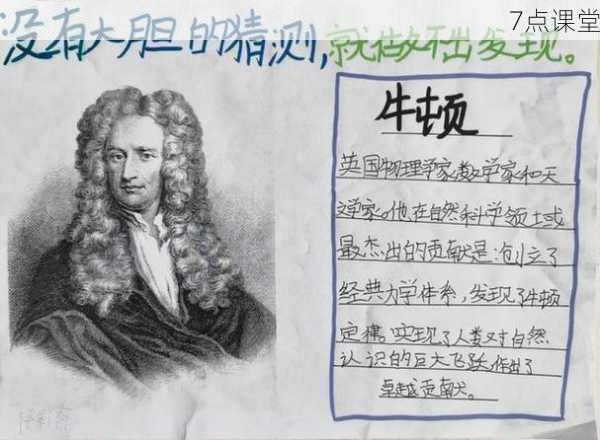 7点课堂
没有大胆的猜测,就做不出发现。
牛顿
英国物理学家、数学家和天
文学家。他在自然科学领域
最杰出的贡献是:创立了
经典力学体系,发现了牛顿
定律,实现了人类对自然
认识的巨大飞跃,作出了
卓越贡献。